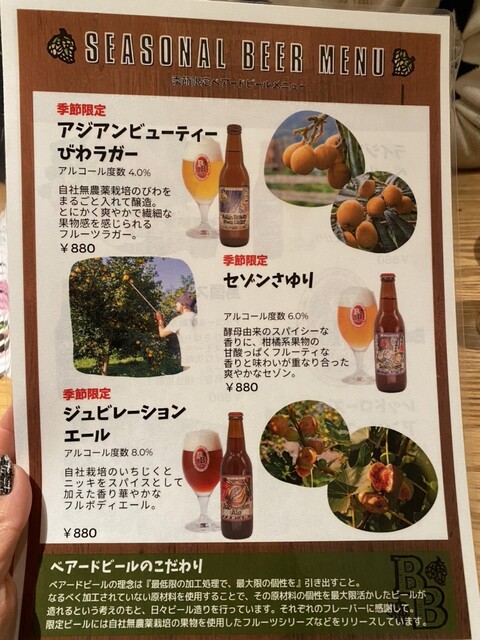 SEASONAL BEER MENU
季節限定ベアードビールメニュー
季節限定
アジアンビューティー
びわラガー
アルコール度数 4.0%
自社無農薬栽培のびわを
まるごと入れて醸造。
とにかく爽やかで繊細な
果物感を感じられる
フルーツラガー。
￥880
季節限定
セゾンさゆり
アルコール度数 6.0%
酵母由来のスパイシーな
香りに、柑橘系果物の
甘酸っぱくフルーティな
香りと味わいが重なり合った
爽やかなセゾン。
￥880
季節限定
ジュビレーション
エール
アルコール度数 8.0%
自社栽培のいちじくと
ニッキをスパイスとして
加えた香り華やかな
フルボディエール。
￥880
ベアードビールのこだわり
ベアードビールの理念は『最低限の加工処理で、最大限の個性を』引き出すこと。
なるべく加工されていない原材料を使用することで、その原材料の個性を最大限活かしたビールが
造れるという考えのもと、日々ビール造りを行っています。それぞれのフレーバーに感謝して。
限定ビールには自社無農薬栽培の果物を使用したフルーツシリーズなどをリリースしています。
BB